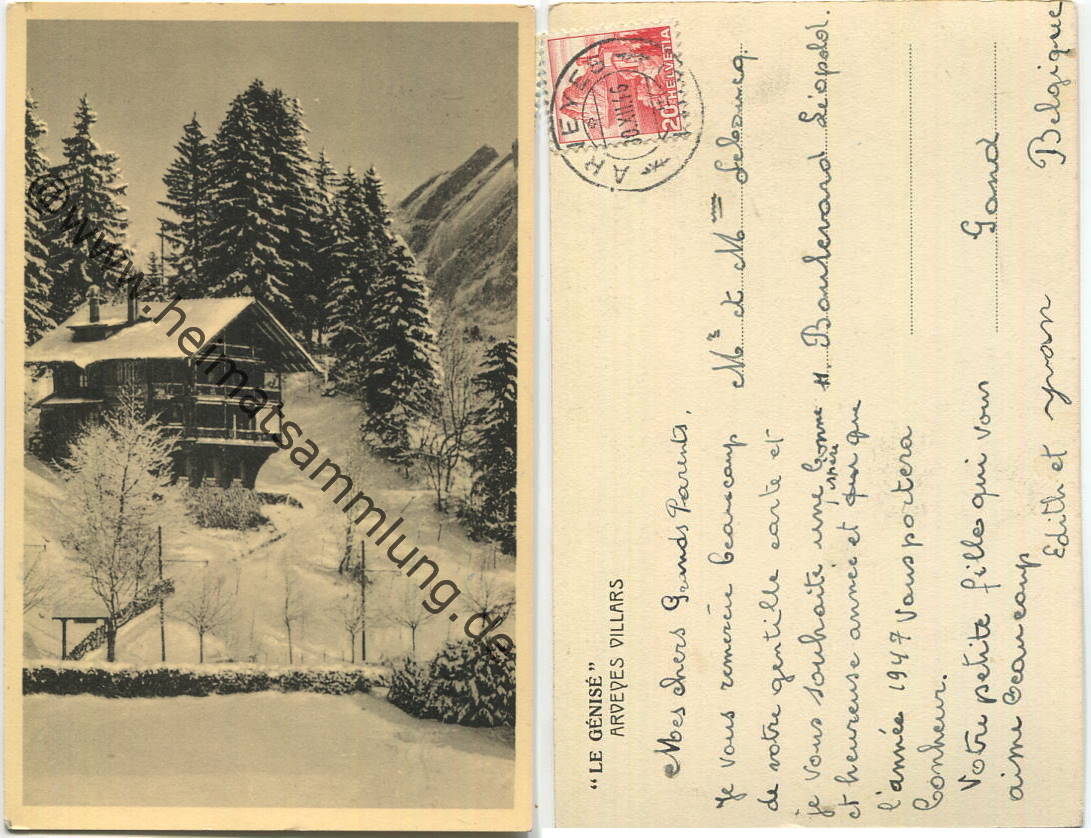 ©www.heimatsammlung.de
"LE GÉNISÉ"
ARVEYES VILLARS
Mes chers Grands Parents,
Je vous remercie beaucoup
de votre gentille carte et
je vous souhaite une bonne
et heureuse année et j'espère que
l'année 1947 vous portera
bonheur.
Votre petite fille qui vous
aime beaucoup
Edith et yvan
HELVETIA
20
ARVEYES
30.XII.46
Mr et Mme
Boulevard Léopold
Gand
Belgique